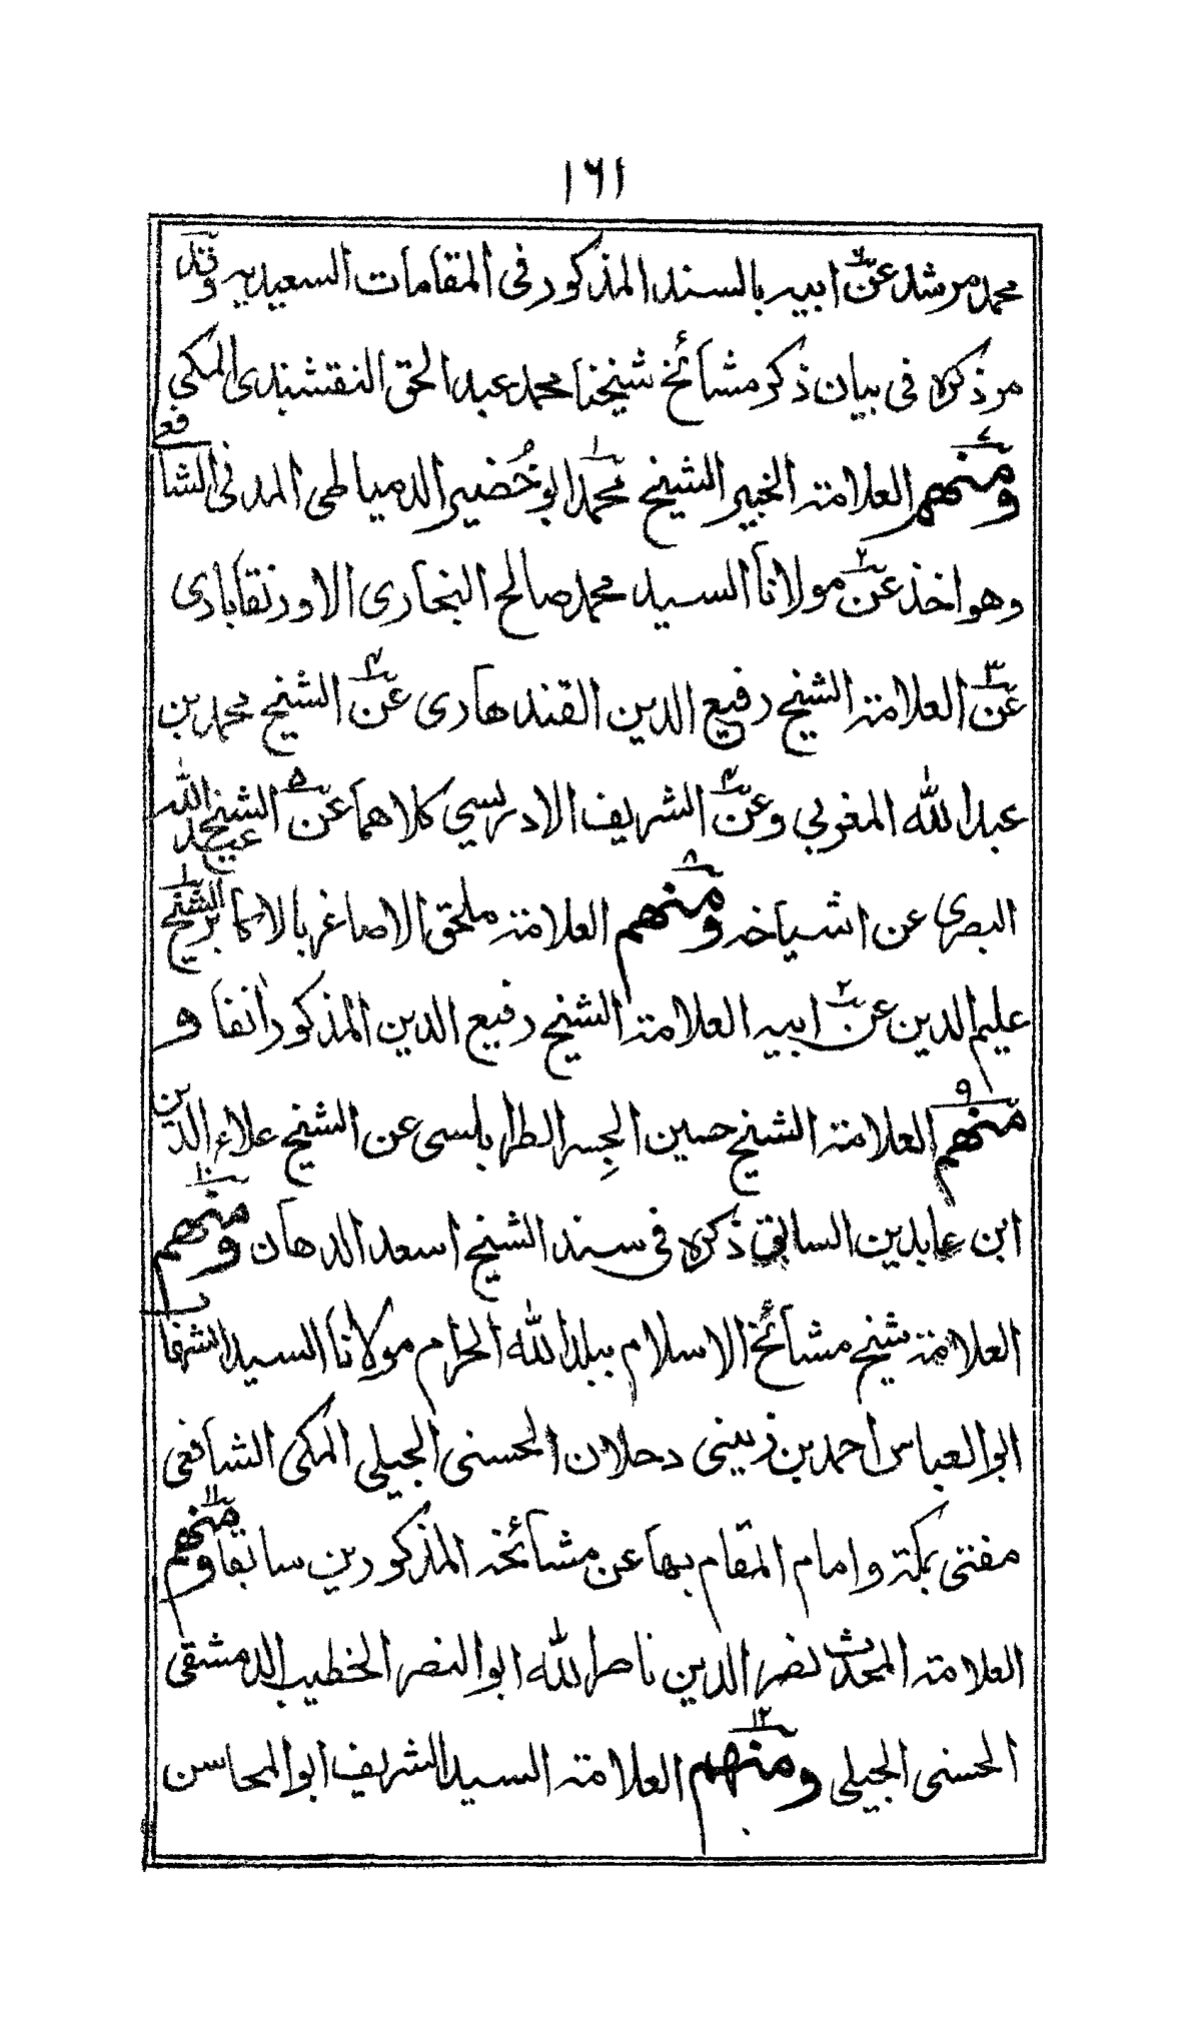 ١٦١
محمد مرشد عن ابيه بالسند المذكور فى المقامات السعيديه وقد
مر ذكره فى بيان ذكر مشائخ شيخنا محمد عبد الحق النقشبندى المكى
٧ ومنهم العلامة الخبير الشيخ ١ محمد ابو خُضير الدمياطى المدنى الشافعى
وهو اخذ عن ٢ مولانا السيد محمد صالح البخارى الاورنقابادى
عن ٣ العلامة الشيخ رفيع الدين القندهارى عن ٤ الشيخ محمد بن
عبد الله المغربي وعن ٤ الشريف الادريسي كلاهما عن ٥ الشيخ عبد الله
البصرى عن اشياخه ٨ ومنهم العلامة ملحق الاصاغر بالاكابر ١ الشيخ
عليم الدين عن ٢ ابيه العلامة الشيخ رفيع الدين المذكور انفا و
٩ منهم العلامة الشيخ حسين الجِسر الطرابلسى عن الشيخ علاء الدين
ابن عابدين السابق ذكره فى سند الشيخ اسعد الدهان ١٠ ومنهم
العلامة شيخ مشائخ الاسلام ببلد الله الحرام مولانا السيد الشرفا
ابو العباس احمد بن زينى دحلان الحسنى الجيلي المكى الشافعى
مفتى بمكة وامام المقام بها عن مشائخه المذكورين سابقا ١١ ومنهم
العلامة المحدث نصر الدين ناصر الله ابو النصر الخطيب الدمشقى
الحسنى الجيلى ١٢ ومنهم العلامة السيد الشريف ابو المحاسن